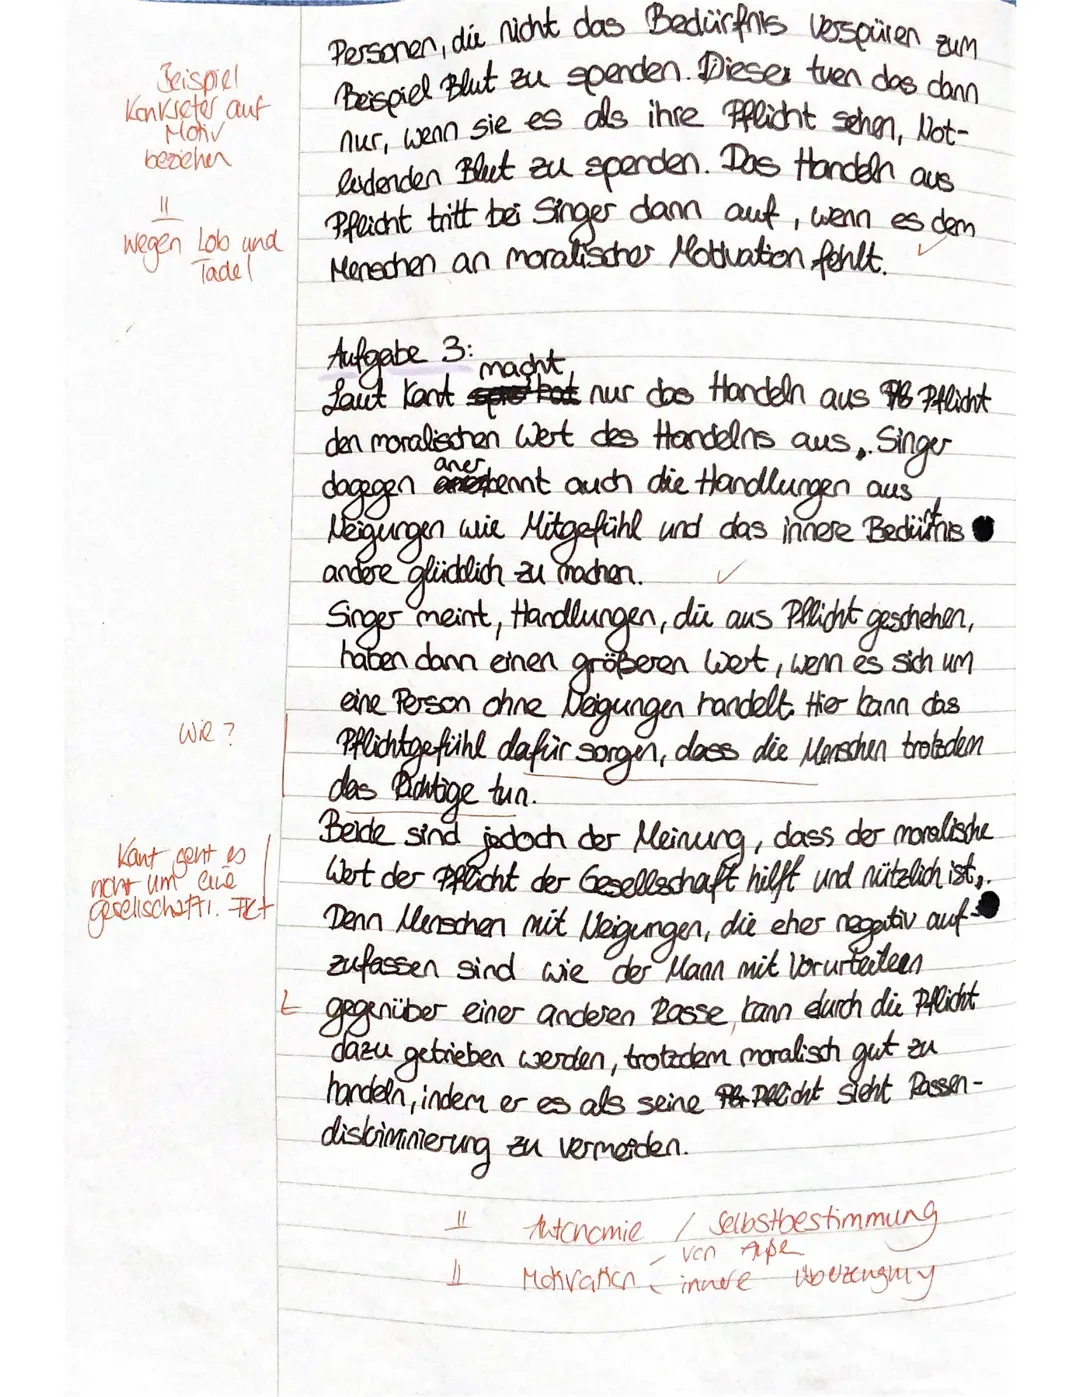 Personen, die nicht das Bedürfnis verspüren zum
Beispiel Blut zu spenden. Dieser tuen das dann
nur, wenn sie es als ihre Pflicht sehen, Not-
leidenden Blut zu spenden. Das Handeln aus
Pflicht tritt bei Singer dann auf, wenn es dem
Menschen an moralischer Motivation fehlt.
Beispiel
Konkreter auf
Motiv
beziehen
"
Wegen Lob und
Tadel
Aufgabe 3:
macht
Laut Kant nur das Handeln aus Pflicht
den moralischen Wert des Handelns aus. Singer
dagegen anerkennt auch die Handlungen aus
Neigungen wie Mitgefühl und das innere Bedürfnis
andere glücklich zu machen.
Singer meint, Handlungen, die aus Pflicht geschehen,
haben dann einen größeren Wert, wenn es sich um
eine Person ohne Neigungen handelt. Hier kann das
Pflichtgefühl dafür sorgen, dass die Menschen trotzdem
das Richtige tun.
Wie?
Beide sind jedoch der Meinung, dass der moralische
Wert der Pflicht der Gesellschaft hilft und nützlich ist.
Denn Menschen mit Neigungen, die eher negativ auf-
zufassen sind wie der Mann mit Vorurteilen
gegenüber einer anderen Rasse, kann durch die Pflicht
dazu getrieben werden, trotzdem moralisch gut zu
handeln, indem er es als seine Pflicht sieht Rassen-
diskriminierung zu vermeiden.
Kant geht es
nicht um eine
gesellschaftl.
" Autonomie / Selbstbestimmung
" Motivation von Außen
innere Überzeugung